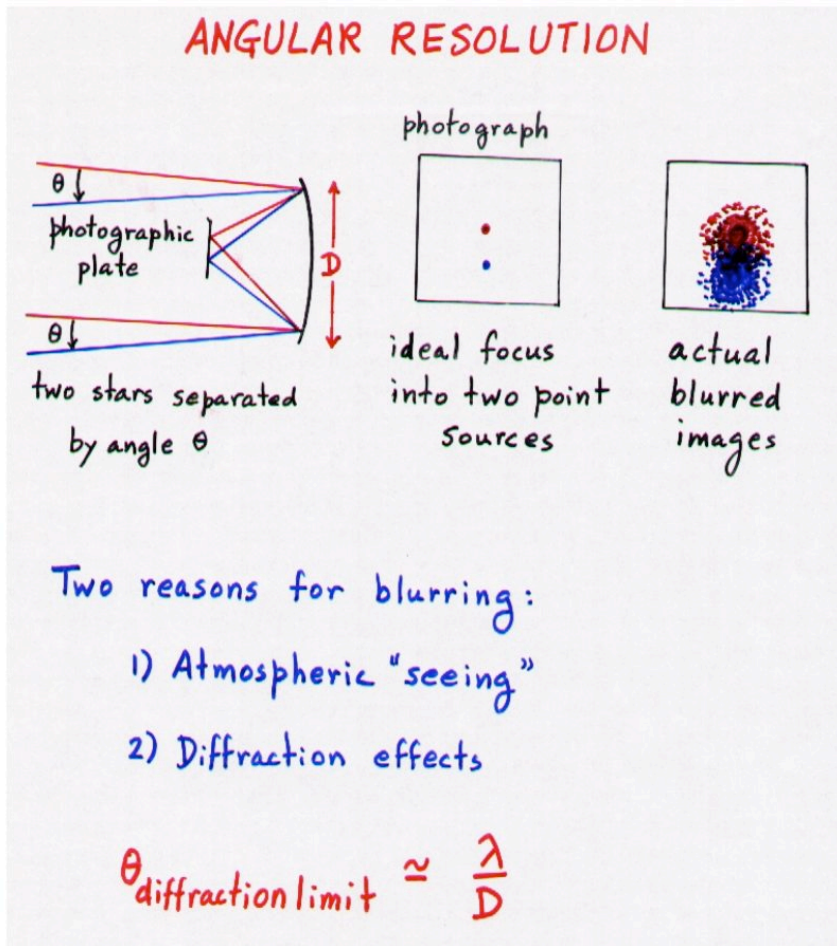 ANGULAR RESOLUTION
θ
photographic
plate
θ
D
two stars separated
by angle θ
photograph
ideal focus
into two point
sources
actual
blurred
images
Two reasons for blurring:
1) Atmospheric "seeing"
2) Diffraction effects
θ diffraction limit ≃ λ/D